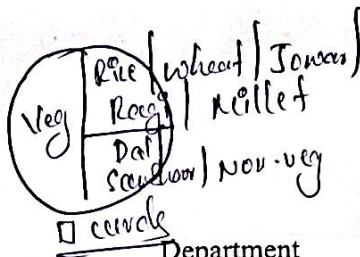 Rice | Wheat | Jowar |
Veg Ragi | Millet
Dal
Sambar | Non-veg
curds
Department